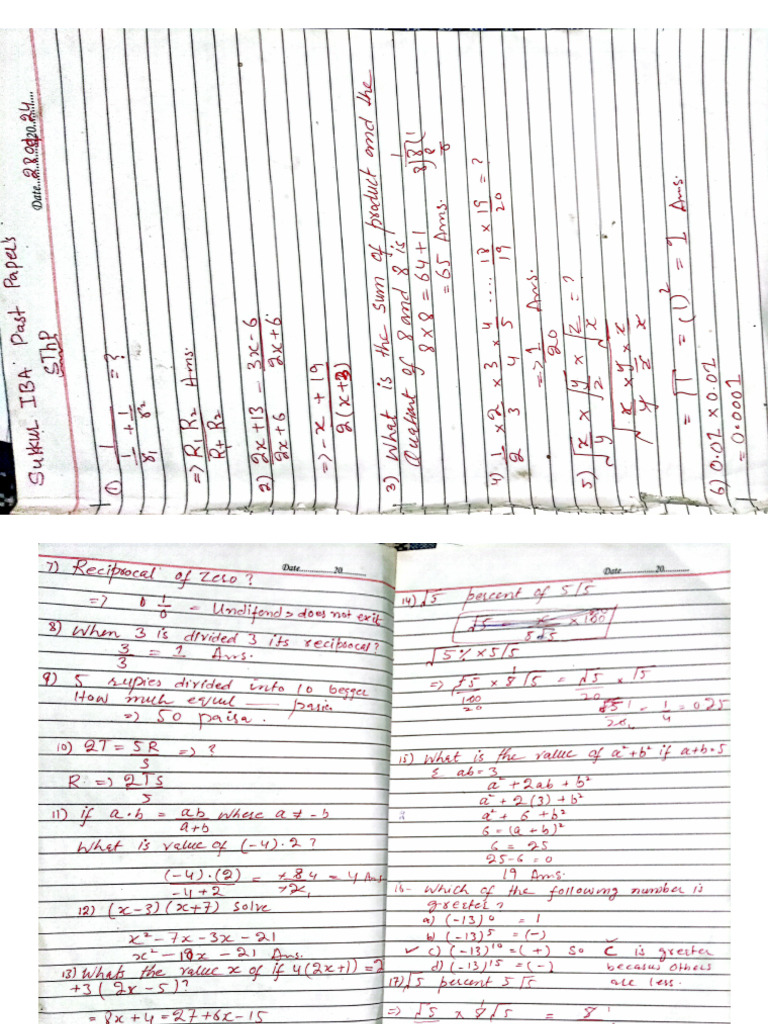 Sukkur IBA Past Papers
Date...28 09 20 24
SThP
① 1 / (1/r₁ + 1/r₂) = ?
=> R₁ R₂ / R₁+R₂ Ans.
2) 2x+13 / 2x+6 - 3x-6 / 2x+6
=> -x + 19 / 2(x+3)
3) What is the sum of product and the
Quotient of 8 and 8 is
8 x 8 = 64 + 1
= 65 Ans.
4) 1/2 x 2/3 x 3/4 x 4/5 .... 18/19 x 19/20 = ?
=> 1/20 Ans.
5) √x/y x √y/z x √z/x = ?
√ x/y x y/z x z/x
= √1 = (1)² = 1 Ans.
6) 0.01 x 0.01
= 0.0001
Date.............20..........
7) Reciprocal of zero?
=> 0 1/0 = Undifend > does not exit
8) When 3 is divided 3 its reciprocal?
3/3 = 1 Ans.
9) 5 rupies divided into 10 begger
How much equal ___ pasie
=> 50 paisa.
10) 2T = 5R/3 => ?
R. => 2T3/5
11) if a·b = ab/a+b where a ≠ -b
What is value of (-4)·2?
(-4)·(2) / -4+2 = +84 / +2, = 4 Ans
12) (x-3)(x+7) solve
x² - 7x - 3x - 21
x² - 10x - 21 Ans.
13) Whats the value x of if 4(2x+1) = 2
+3(2x-5)?
= 8x + 4 = 27 + 6x - 15
Date.............20..........
14) √5 percent of 5√5
√5% x 5√5
=> √5/100 x 5√5 = √5/20 x √5
5/20 = 1/4 = 0.25
15) What is the value of a²+b² if a+b=5
& ab = 3
a² + 2ab + b²
a² + 2(3) + b²
a² + 6 + b²
6 = (a + b)²
6 = 25
25 - 6 = 0
19 Ans.
16- Which of the following number is
greter?
a) (-13)⁰ = 1
b) (-13)⁵ = (-)
✓ c) (-13)¹⁰ = (+) So C is greter
d) (-13)¹⁵ = (-) because others
are less.
17) √5 percent 5√5
=> √5 x 8√5 = 8